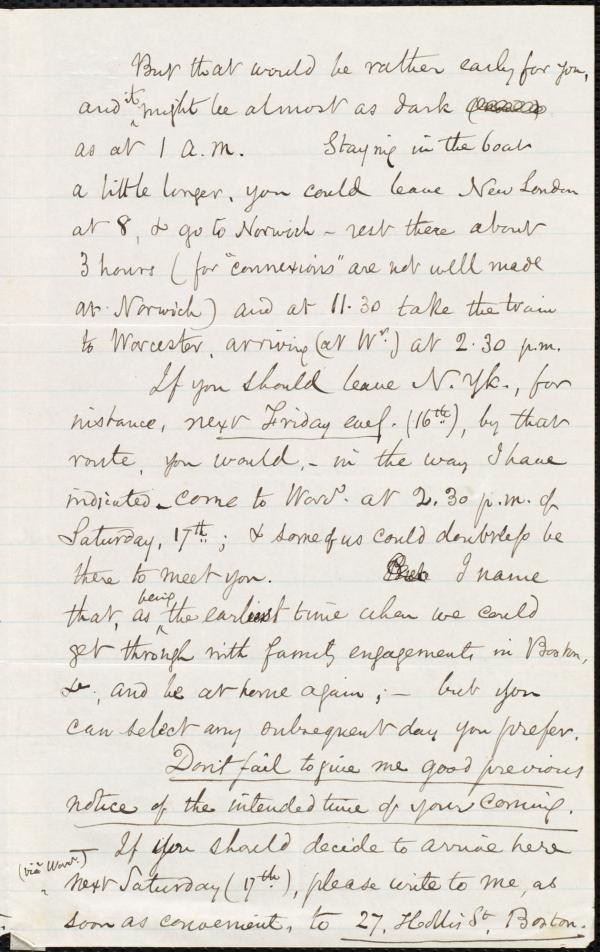 But that would be rather early for you,
and it might be almost as dark
as at 1 A.M. Staying in the boat
a little longer, you could leave New London
at 8, & go to Norwich – rest there about
3 hours (for "connexions" are not well made
at Norwich) and at 11.30 take the train
to Worcester, arriving (at Wr.) at 2.30 p.m.
If you should leave N. Yk., for
instance, next Friday eveg. (16th), by that
route, you would, – in the way I have
indicated – come to Worr. at 2.30 p.m. of
Saturday, 17th; & some of us could doubtless be
there to meet you. But I name
that, as being the earliest time when we could
get through with family engagements in Boston,
&c, and be at home again; – but you
can select any subsequent day you prefer.
Don't fail to give me good previous
notice of the intended time of your coming.
– If you should decide to arrive here
(via Worr.)
next Saturday (17th), please write to me, as
soon as convenient, to 27, Hollis St, Boston.